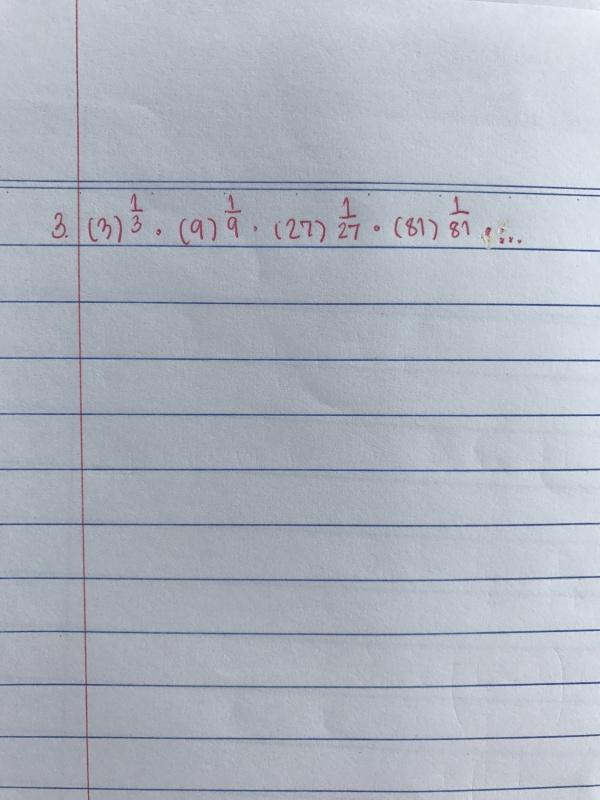 3. (3)^{\frac{1}{3}} \cdot (9)^{\frac{1}{9}} \cdot (27)^{\frac{1}{27}} \cdot (81)^{\frac{1}{81}} \cdot ...